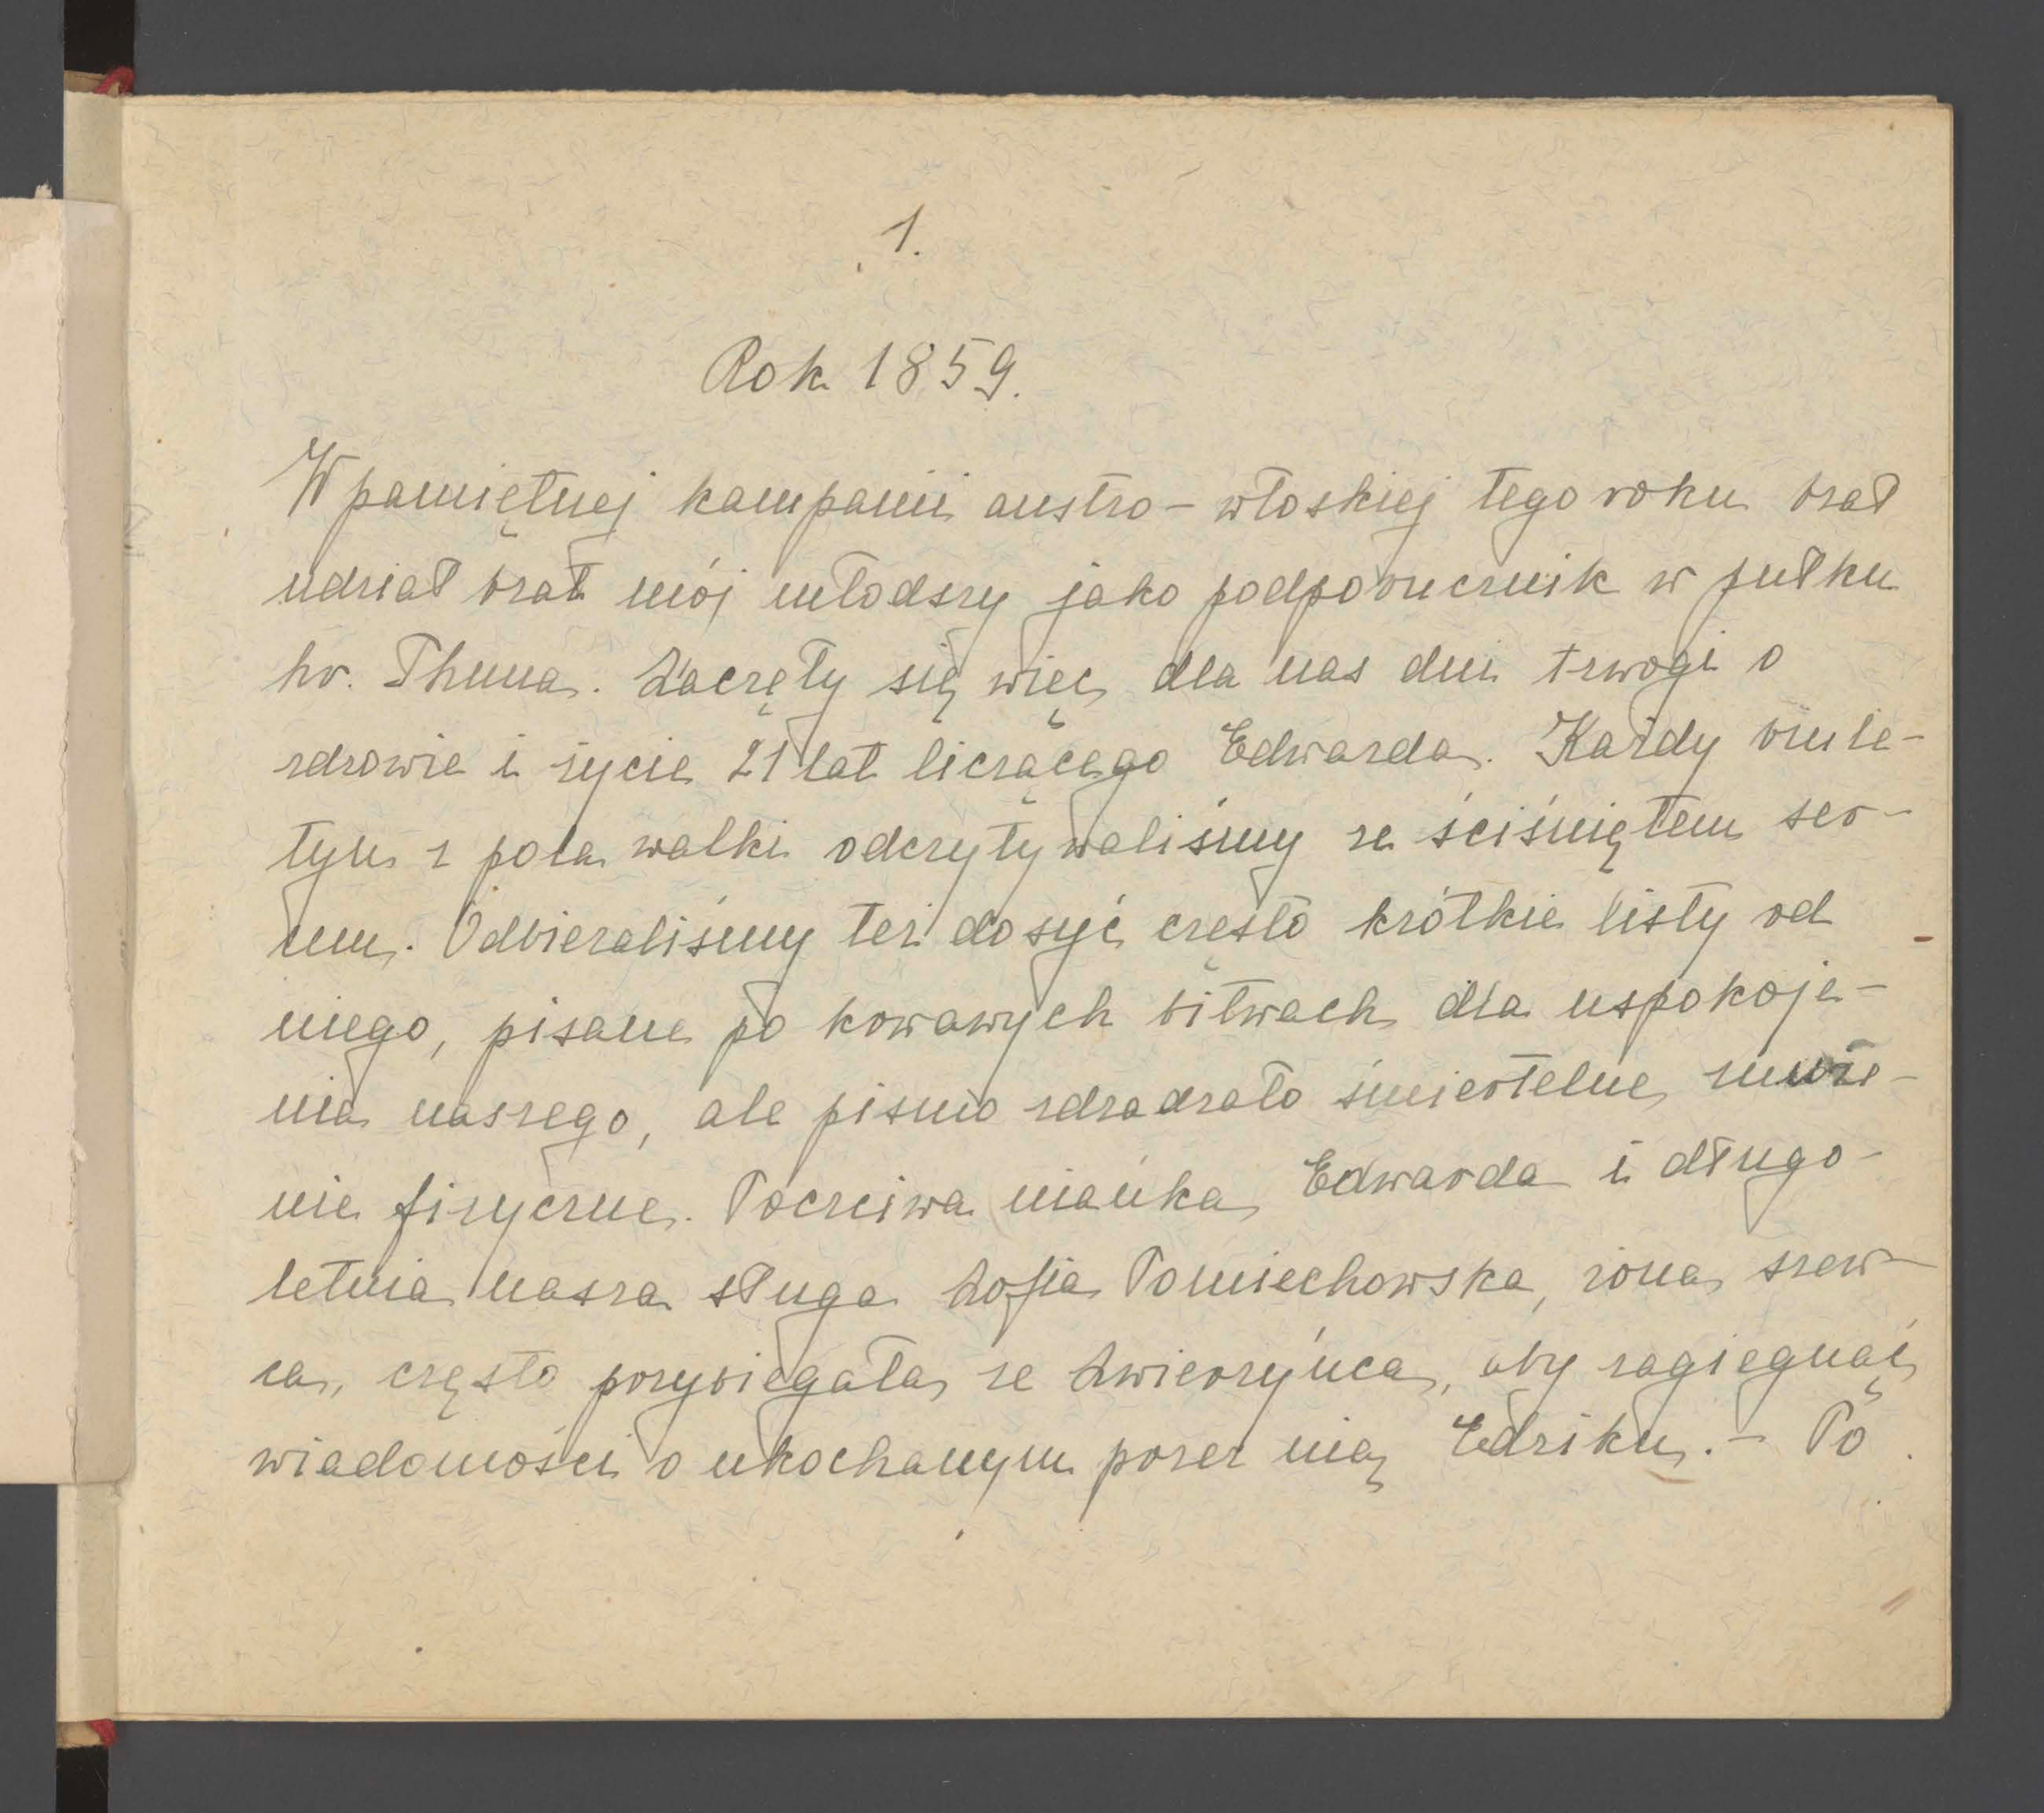 1.
Rok 1859.
W pamiętnej kampanii austro-włoskiej tego roku brał
udział brat mój młodszy jako podporucznik w pułku
hr. Thuna. Zaczęły się więc dla nas dni trwogi o
zdrowie i życie 21 lat liczącego Edwarda. Każdy biule-
tyn z pola walki odczytywaliśmy ze ściśniętem ser-
cem. Odbieraliśmy też dosyć często krótkie listy od
niego, pisane po krwawych bitwach dla uspokoje-
nia naszego, ale pismo zdradzało śmiertelne znuże-
nie fizyczne. Poczciwa niańka Edwarda i długo-
letnia nasza sługa Zofia Pomiechowska, żona szew-
ca, często przybiegała ze Zwierzyńca, aby zasięgnąć
wiadomości o ukochanym przez nią Edziku. - Po